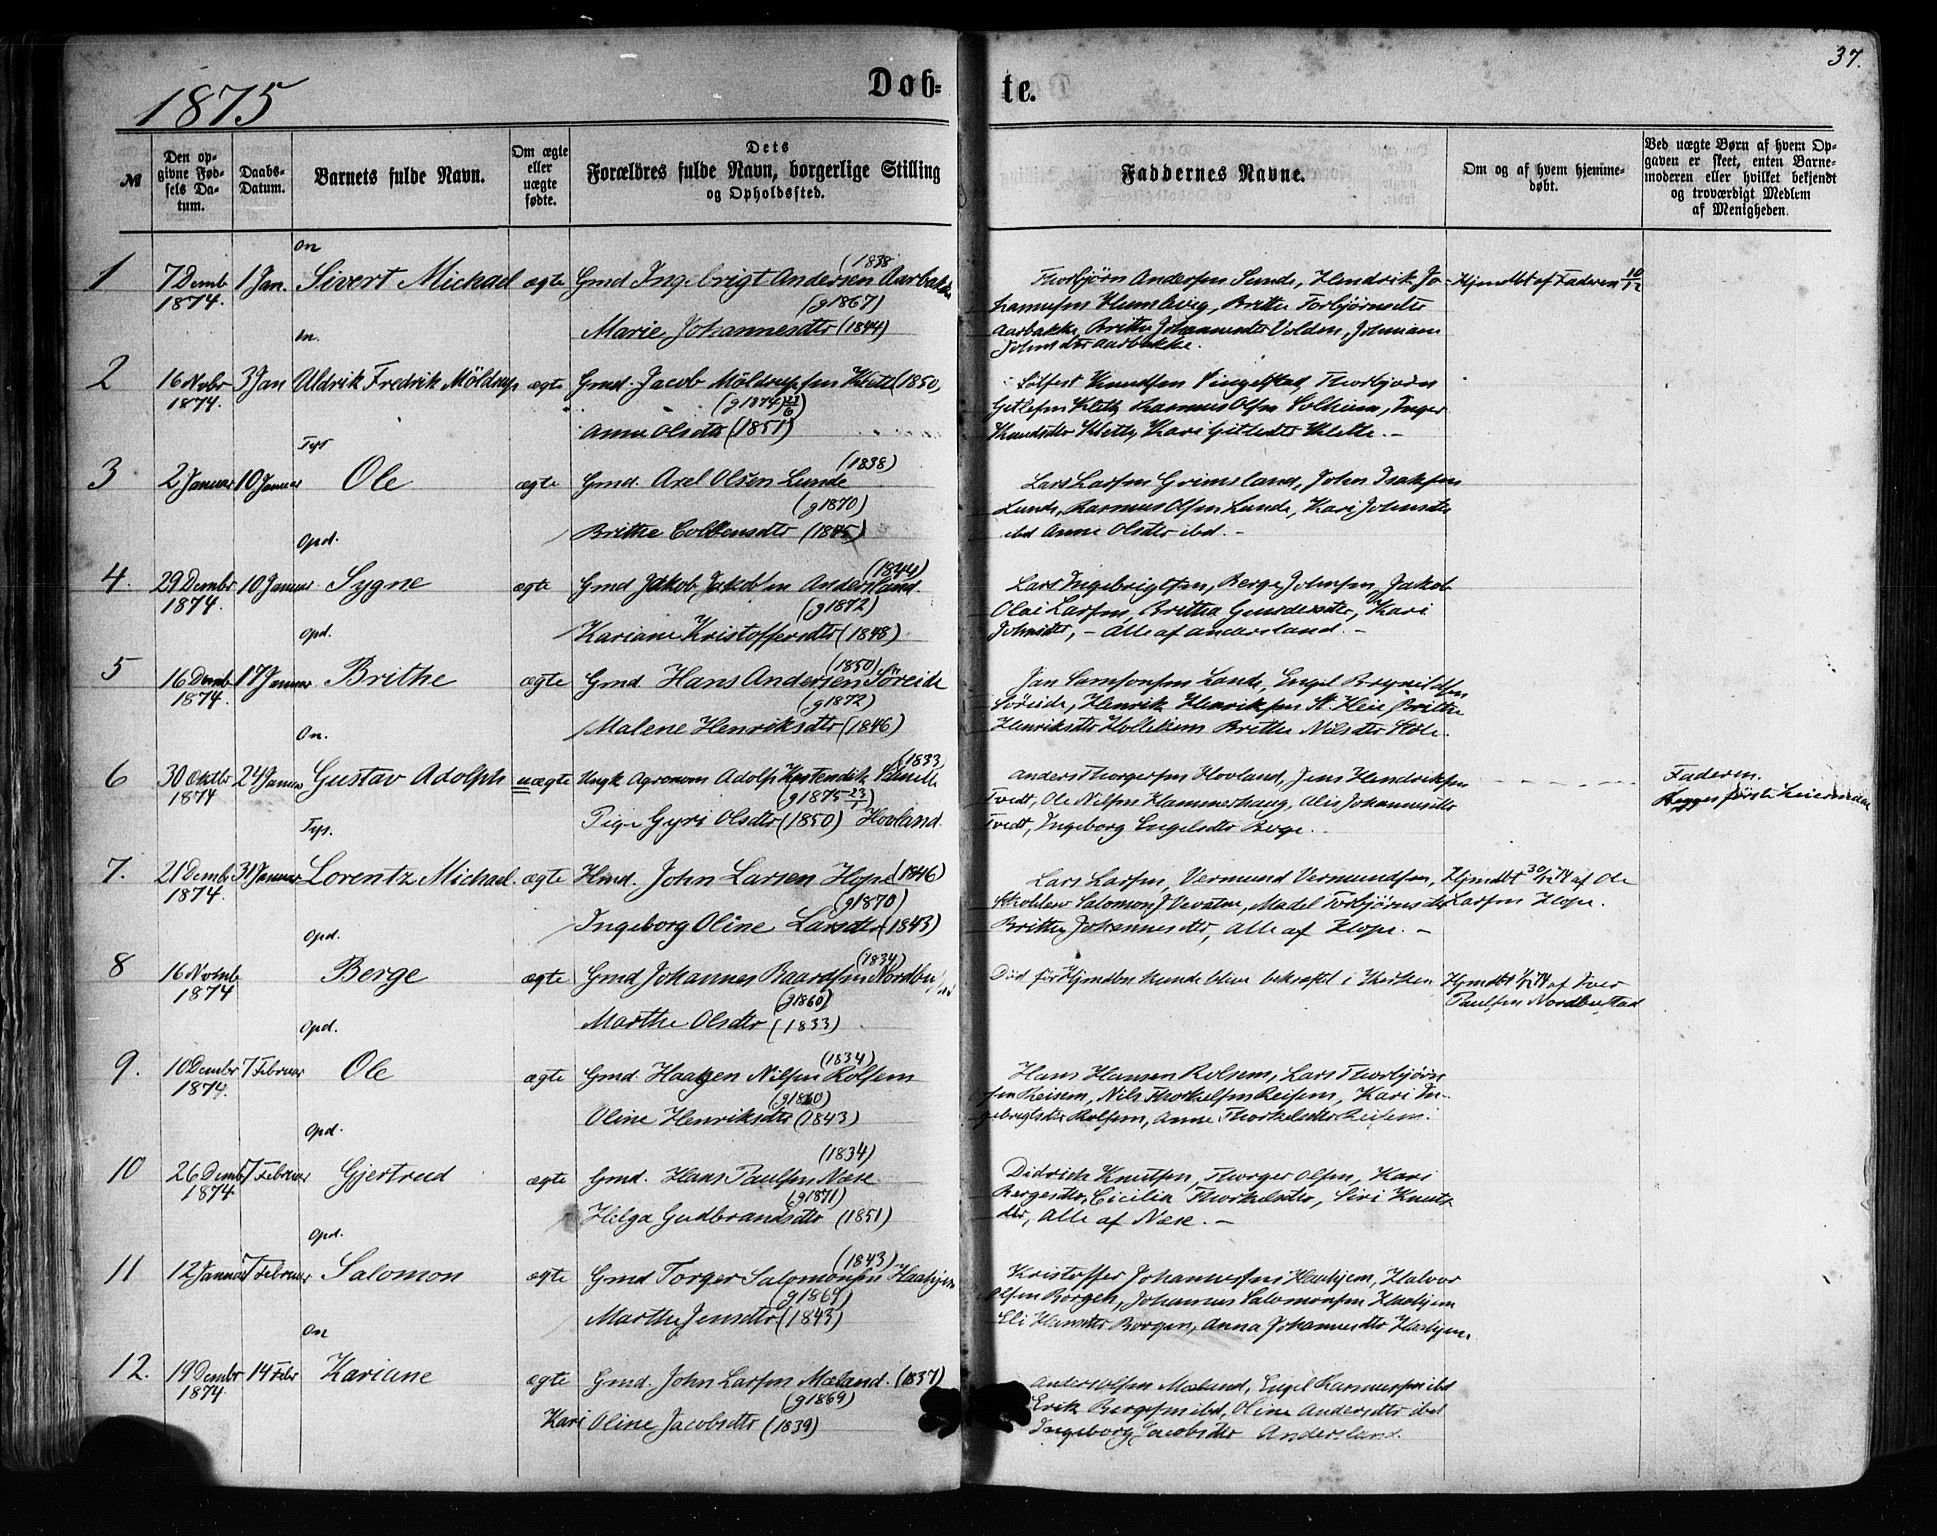 37.
1875
Døb- te.
№
Den opgivne Fødsels Datum.
Daabs-Datum.
Barnets fulde Navn.
Om ægte eller uægte fødte.
Dets Forældres fulde Navn, borgerlige Stilling og Opholdssted.
Faddernes Navne.
Om og af hvem hjemmedøbt.
Ved uægte Børn af hvem Opgaven er skeet, enten Barnemoderen eller hvilket bekjendt og troværdigt Medlem af Menigheden.
On
(1838
1 7 Decmb 1 Jan. Sivert Michael ægte Gmd Ingebrigt Andersen Aarbakke
1874. (g1867)
Marie Johannesdtr (1844)
Thorbjørn Andersen Sunde, Hendrik Jo-
hannesen Humlevig, Brithe Torbjørnsdtr
Aarbakke, Brithe Johannesdtr Volden, Johanne
Johnsdtr Aarbakke.
Hjemdbt af Faderen 10/12
On.
2 16 Novbr 3 Jan Uldrik Fredrik Möldrup ægte Gmd. Jacob Möldrupsen Klette (1850)
1874. (g1874) 23/6
Anne Olsdtr (1851)
Sølfest Knudsen Vingelstad, Thorbjørn
Gitlesen Klette, Rasmus Olsen Solheim, Inger
Knudsdtr Klette, Kari Gitlesdtr Klette. –
Tys
(1838)
3 2 Januar 10 Januar Ole ægte Gmd. Axel Olsen Lunde
(g1870)
Brithe Colbensdtr (1845)
Lars Larsen Grimsland, John Isaksen
Lunde, Rasmus Olsen Lunde, Kari Johnsdtr
ibd Anne Olsdtr ibd. –
Opd.
(1844)
4. 29 Decmbr 10 Januar Sygne ægte Gmd Jakob Jakobsen Andersland.
1874. (g1872)
Kariane Kristoffersdtr (1848)
Lars Ingebrigtsen, Berge Johnsen, Jakob
Olai Larsen, Brithe Gundersdtr, Kari
Johnsdtr, – Alle af Andersland. –
Opd.
(1850)
5 16 Decmb 17 Januar Brithe ægte Gmd Hans Andersen Søreide
1874. (g1872)
Malene Henriksdtr (1846)
Jan Samsonsen Lande, Engel Brynildsen
Søreide, Henrik Henriksen St. Heie, Brithe
Henriksdtr Hollekim Brithe Nilsdtr Støle.
On.
(1833,
6 30 Oktbr 24 Januar Gustav Adolph uægte Ungk Agronom Adolp
1874 (g1875 23/1)
Pige Gyri Olsdtr (1850) Hovland.
Anders Thorgersen Hovland, Jens Hendriksen
Tvedt, Ole Nilsen Hammerhaug, Alis Johannesdtr
Tvedt, Ingeborg Engelsdtr Berge.
Faderen.
Begges første Leiermaal
Tys.
7. 21 Decmb 31 Januar Lorentz Michael. ægte Hmd. John Larsen Hope (1846)
1874. (g1870)
Ingeborg Oline Larsdtr (1843)
Lars Larsen, Vermund Vermundsen,
Salomon J Vevatne, Madel Torbjørnsdtr
Brithe Johannesdtr, Alle af Hope. –
Hjmdbt 30/12 74 af Ole
Larsen Hope.
Opd.
(1834)
8 16 Novmb Berge ægte Gmd Johannes Baardsen Nordbustad
1874 (g1860)
Marthe Olsdtr (1833)
Død før Hjmdben kunde blive bekræftet i Kirken
Hjmdbt 1/12 74 af Iver
Paulsen Nordbustad
Opd.
(1834)
9. 10 Decmbr 7 Februar Ole ægte Gmd. Haagen Nilsen Rolfsem
1874. (g1860)
Oline Henriksdtr (1843)
Hans Hansen Rolsem, Lars Thorbjørn
sen Reisem, Nils Thorkelsen Reisem, Kari In-
gebrigtsdtr Rolfsem, Anne Thorkelsdtr Reisem.
Opd.
(1834)
10 26 Decmb 7 Februar Gjertrud ægte Gmd. Hans Paulsen Næse
1874 (g1871)
Helga Gudbrandsdtr (1851)
Didrich Knutsen, Thorger Olsen, Kari
Bergesdtr, Cicilia Thorkelsdtr, Siri Knuts-
dtr, Alle af Næse. –
Opd.
(1843)
11 12 Januar 7 Februar Salomon ægte Gmd Torger Salomonsen Haahjem
(g1869)
Marthe Jensdtr (1843)
Kristoffer Johannessen Haahjem, Halvor
Olsen Borgen, Johannes Salomonsen Haahjem
Eli Hansdtr Borgen, Anna Johannesdtr Haahjem.
On
12. 19 Decmbr 14 Febr Kariane ægte Gmd. John Larsen Mæland. (1837)
1874. (g1869)
Kari Oline Jacobsdtr (1839)
Anders Olsen Mæland, Engel Rasmussen ibd
Erik Bergesen ibd, Oline Andersdtr ibd
Ingeborg Jacobsdtr Andersland.